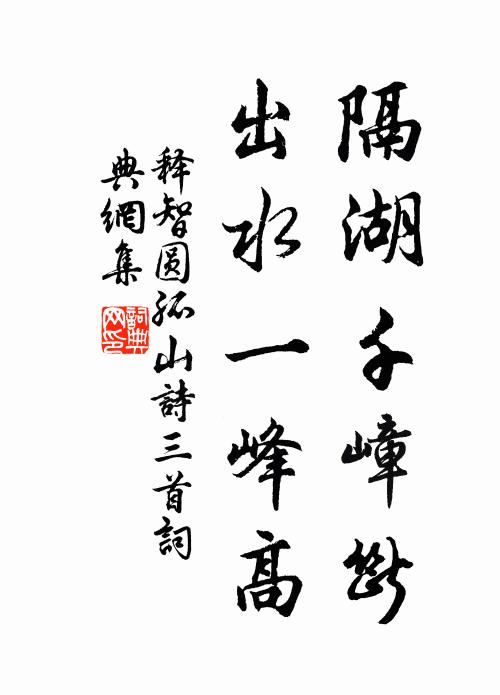 隔湖千嶂斷
出水一峰高
释智圆孤山詩三首詞
典網集
詞典网印